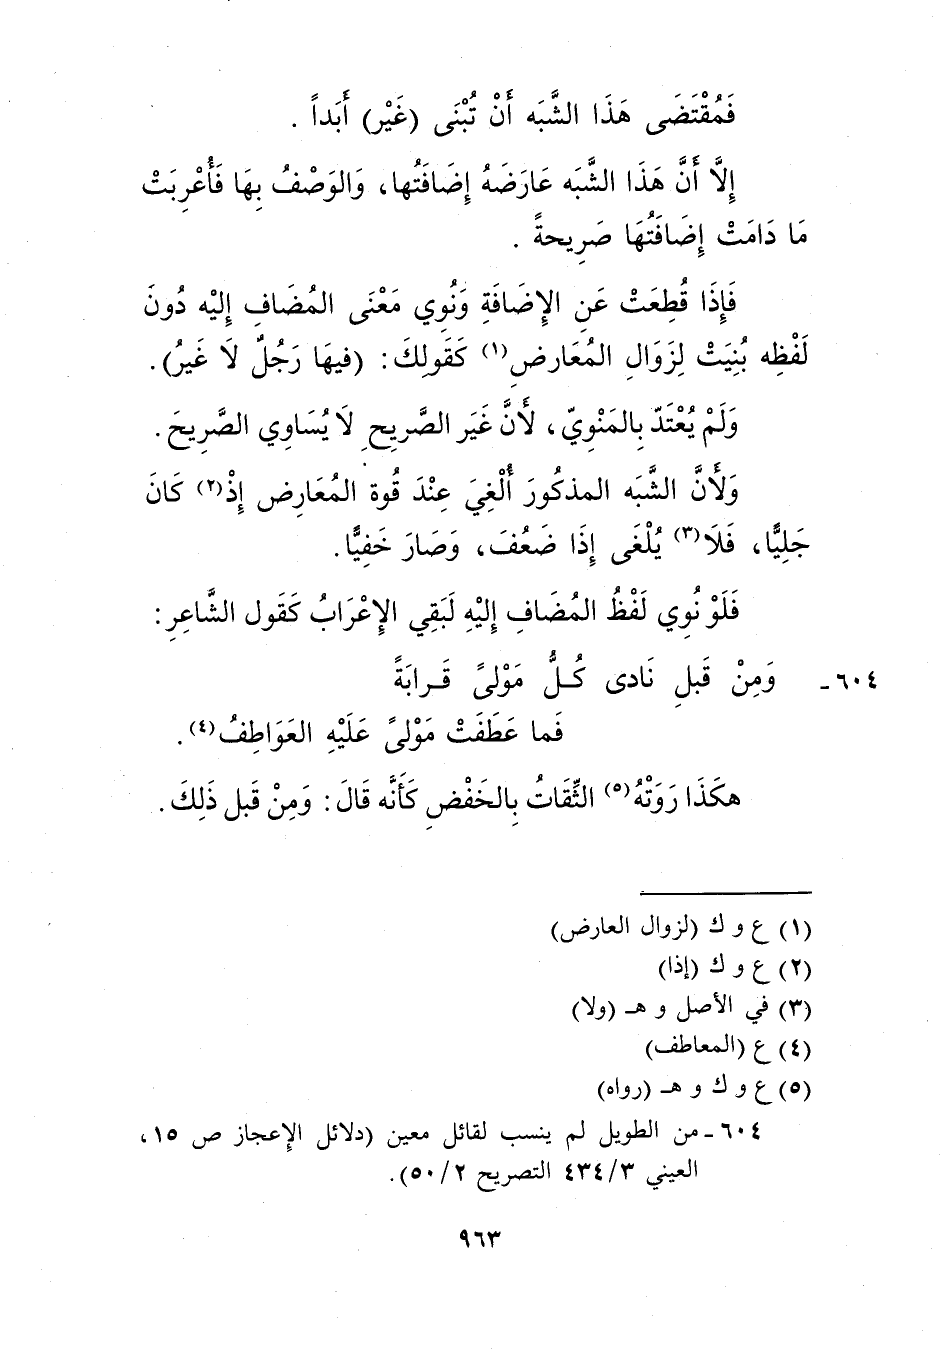 فَمُقْتَضَى هَذَا الشَّبَه أَنْ تُبْنَى (غَيْر) أَبَداً .
إِلَّا أَنَّ هَذَا الشَّبَه عَارَضَهُ إِضَافَتُها، وَالوَصْفُ بِهَا فَأُعْرِبَتْ
مَا دَامَتْ إِضَافَتُهَا صَرِيحةً .
فَإِذَا قُطِعَتْ عَنِ الإِضَافَةِ وَنُوِي مَعْنَى المُضَافِ إِلَيْه دُونَ
لَفْظِه بُنِيَتْ لِزَوَالِ المُعَارضِ(١) كَقَولِكَ: (فيهَا رَجُلٌ لَا غَيرُ).
وَلَمْ يُعْتَدّ بِالمَنْوِيّ، لَأَنَّ غَيَر الصَّرِيحِ لَا يُسَاوِي الصَّرِيحَ.
وَلأَنَّ الشَّبَه المذكُورَ أُلْغِيَ عِنْدَ قُوة المُعَارِض إِذْ(٢) كَانَ
جَلِيًّا، فَلَا(٣) يُلْغَى إِذَا ضَعُفَ، وَصَارَ خَفِيًّا.
فَلَوْ نُوِي لَفْظُ المُضَافِ إِلَيْهِ لَبَقِي الإِعْرَابُ كَقَول الشَّاعِرِ:
٦٠٤ - وَمِنْ قَبلِ نَادى كُـلُّ مَوْلىً قَـرابَةً
فَما عَطَفَتْ مَوْلىً عَلَيْهِ العَوَاطِفُ(٤).
هكَذَا رَوَتْهُ(٥) الثِّقَاتُ بِالخَفْضِ كَأَنَّه قَالَ: وَمِنْ قَبل ذَلِكَ.
(١) ع و ك (لزوال العارض)
(٢) ع و ك (إذا)
(٣) في الأصل و هـ (ولا)
(٤) ع (المعاطف)
(٥) ع و ك و هـ (رواه)
٦٠٤ - من الطويل لم ينسب لقائل معين (دلائل الإعجاز ص ١٥،
العيني ٤٣٤/٣ التصريح ٥٠/٢).
٩٦٣